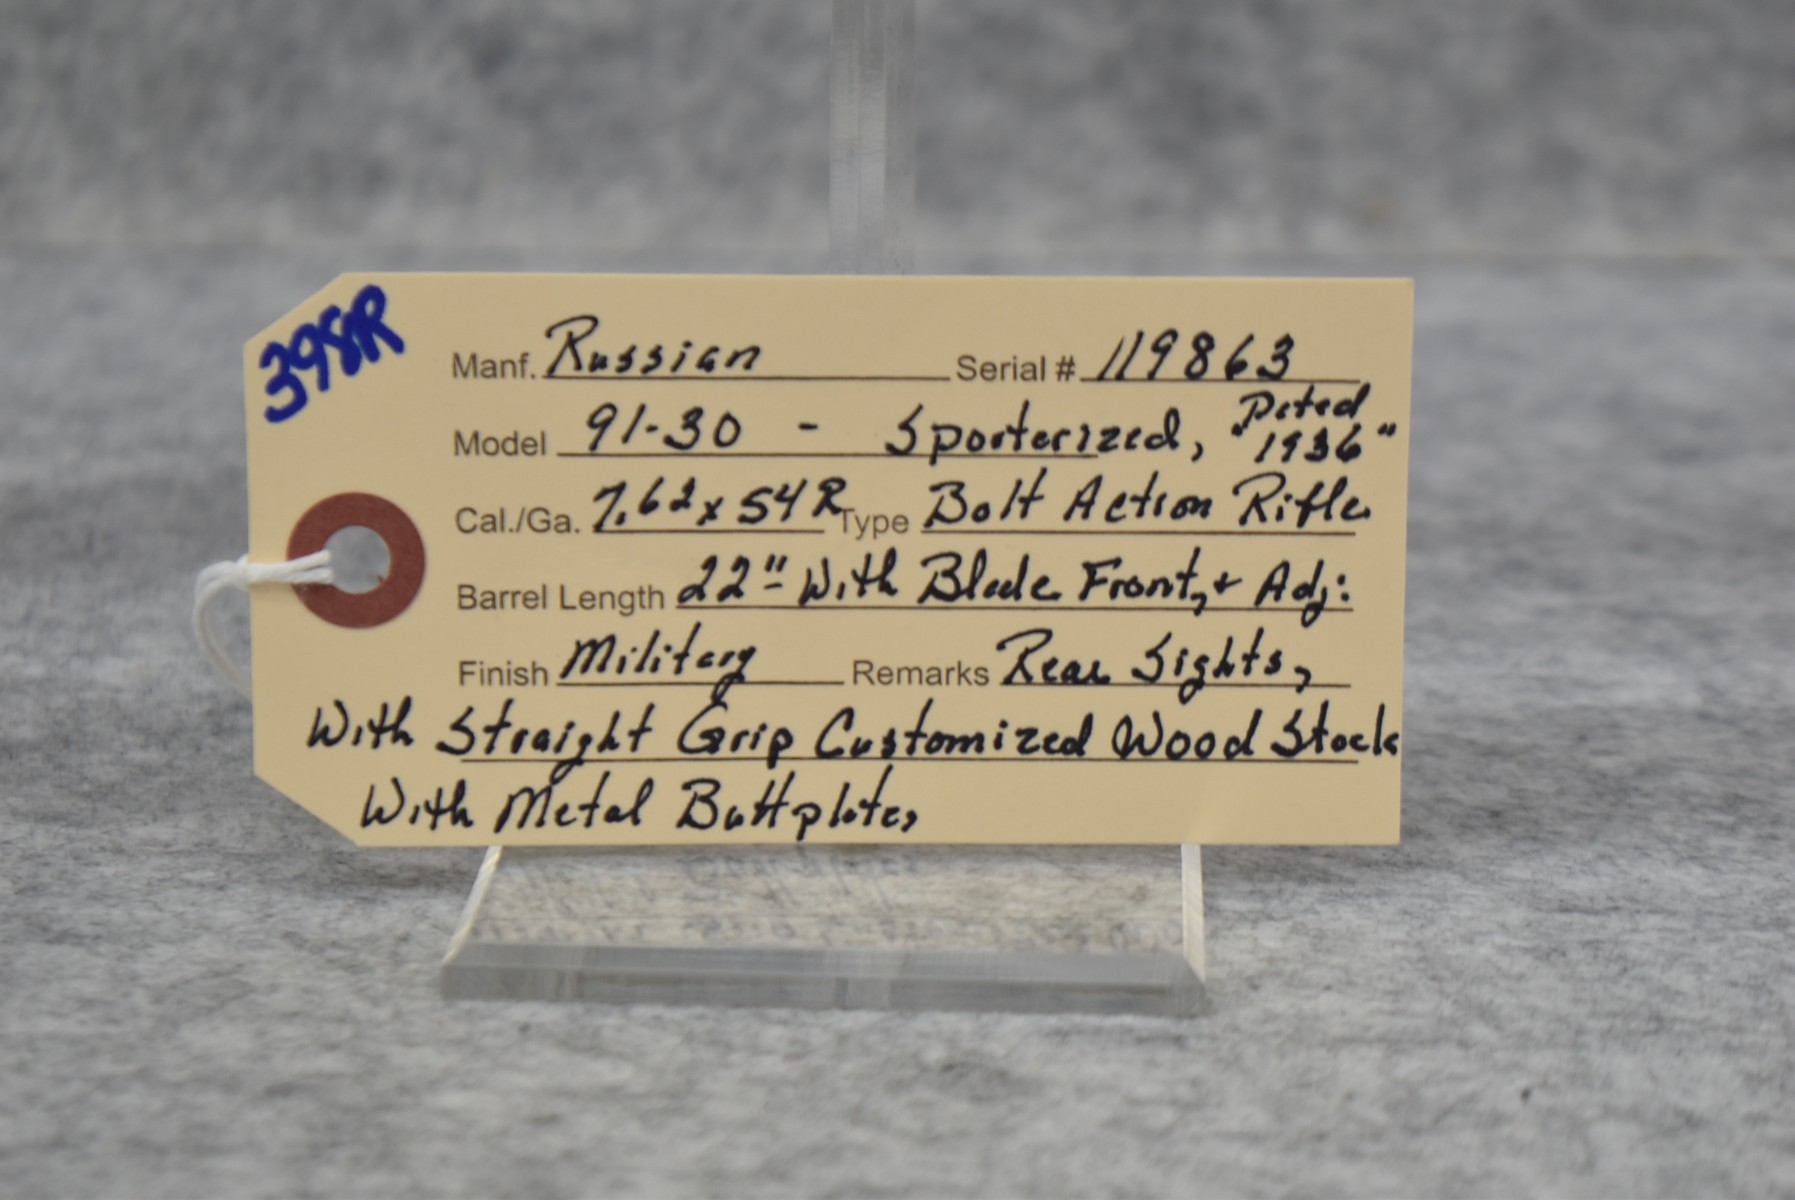 398R
Manf. Russian Serial # 119863
Model 91-30 - Sporterized, Dated "1936"
Cal./Ga. 7.62x54R Type Bolt Action Rifle
Barrel Length 22" With Blade Front, + Adj:
Finish Military Remarks Rear Sights,
With Straight Grip Customized Wood Stock
With Metal Buttplate,